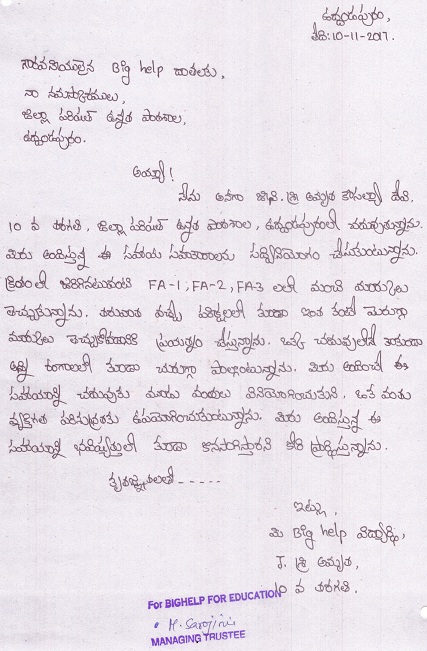 ఉద్దండపురం,
తేది:10-11-2017.
గౌరవనీయులైన Big help దాతలకు,
నా నమస్కారములు,
జిల్లా పరిషత్ ఉన్నత పాఠశాల,
ఉద్దండపురం.
అయ్యా!
నేను అనగా జె. శ్రీ అమృత దేవి.
10 వ తరగతి, జిల్లా పరిషత్ ఉన్నత పాఠశాల, ఉద్దండపురంలో చదువుతున్నాను.
మీరు అందిస్తున్న ఈ సహాయ సహకారాలను సద్వినియోగం చేసుకుంటున్నాను.
క్రితంలో జరిగినటువంటి FA-1, FA-2, FA-3 లలో మంచి మార్కులు
తెచ్చుకున్నాను. తరువాత వచ్చే పరీక్షలలో కూడా ఇంత కంటే మెరుగ్గా
మార్కులు తెచ్చుకోవడానికి ప్రయత్నం చేస్తున్నాను. ఒక్క చదువులోనే కాకుండా
అన్ని రంగాలలో కూడా చురుగ్గా పాల్గొంటున్నాను. మీరు అందించే ఈ
సహాయాన్ని చదువుకు మూడు వంతులు వినియోగించుకుని, ఒక వంతు
వ్యక్తిగత పరిశుభ్రతకు ఉపయోగించుకుంటున్నాను. మీరు అందిస్తున్న ఈ
సహాయాన్ని భవిష్యత్తులో కూడా కొనసాగిస్తారని కోరి ప్రార్థిస్తున్నాను.
కృతజ్ఞతలతో -----
ఇట్లు,
మీ Big help విద్యార్థి,
J. శ్రీ అమృత,
10 వ తరగతి.
For BIGHELP FOR EDUCATION
H. Sarojini
MANAGING TRUSTEE